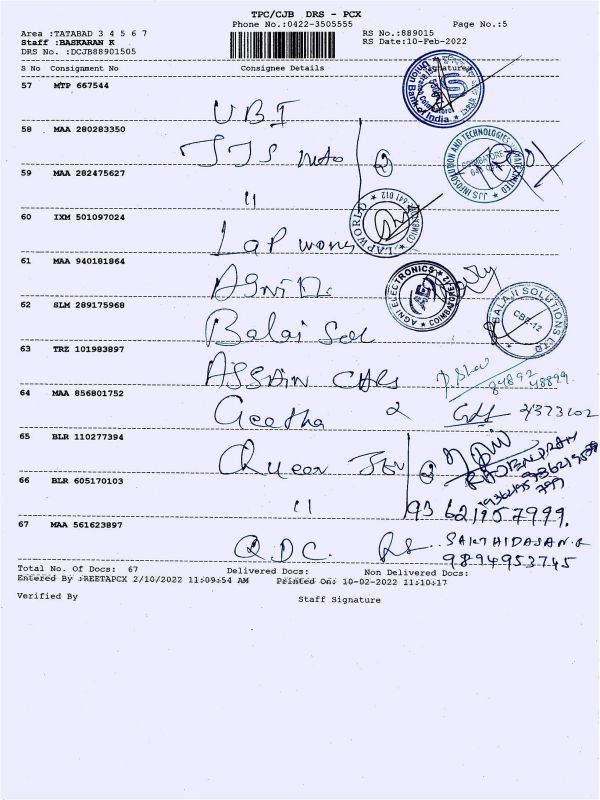 TPC/CJB DRS - PCX
Phone No.:0422-3505555 Page No.:5
Area :TATABAD 3 4 5 6 7 RS No.:889015
Staff :BASKARAN K RS Date:10-Feb-2022
DRS No. :DCJB88901505
S No Consignment No Consignee Details Signature
57 MTP 667544
UBI
Union Bank of India
58 MAA 280283350
JJS Info 2
JJS INFOSOLUTION AND TECHNOLOGIES PRIVATE LIMITED
COIMBATORE
59 MAA 282475627
"
60 IXM 501097024
Lap world
LAPWORLD 641 012
61 MAA 940181864
Agni
AGNI ELECTRONICS COIMBATORE-12
62 SLM 289175968
Balaji Sol
BALAJI SOLUTIONS LTD
CBE-12
63 TRZ 101983897
ASSAIN CARS
84892 48899
64 MAA 856801752
Geetha
65 BLR 110277394
Queen 2
RAJENDRAN
66 BLR 605170103
" 93621957999.
67 MAA 561623897
Q.D.C. SAKTHIDASAN.R
9894953745
Total No. Of Docs: 67 Delivered Docs: Non Delivered Docs:
Entered By :REETAPCX 2/10/2022 11:09:54 AM Printed On: 10-02-2022 11:10:17
Verified By Staff Signature